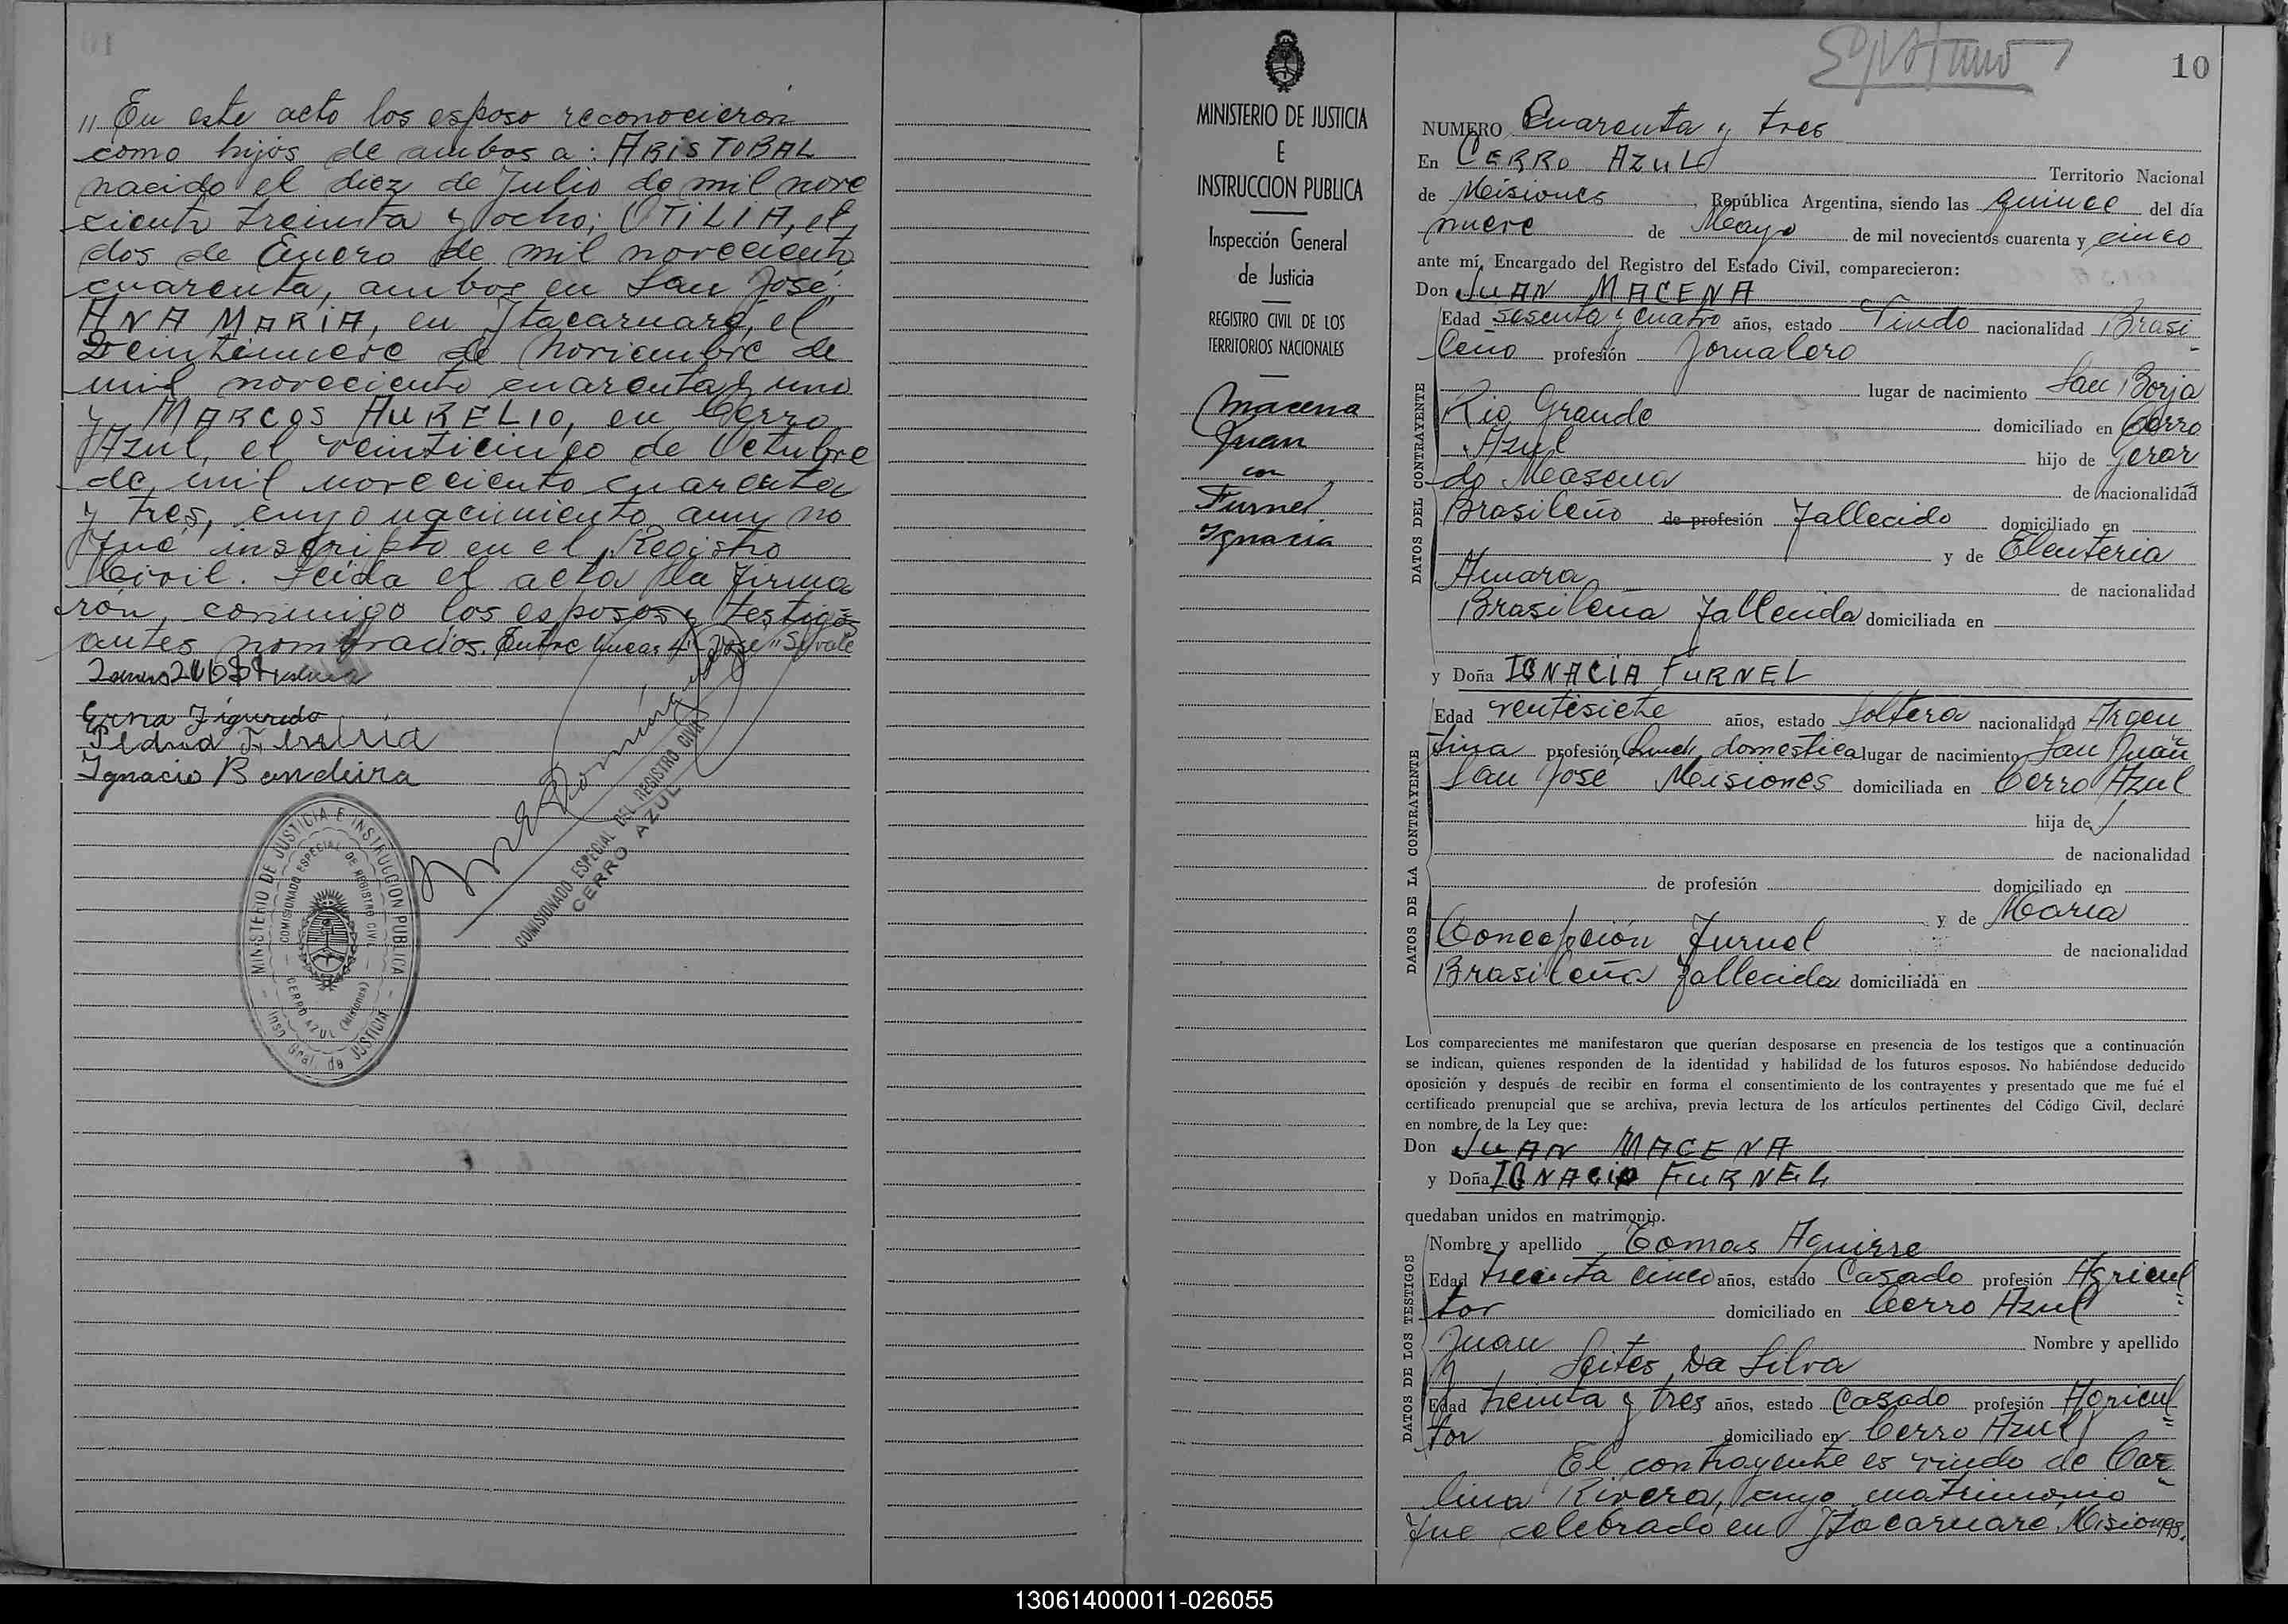 " En este acto los esposo reconocieron
como hijos de ambos a: ARISTOBAL
nacido el diez de Julio de mil nove
ciento treinta y ocho; OTILIA, el
dos de Enero de mil noveciento
cuarenta, ambos en San José;
ANA MARIA, en Itacaruaré, el
veintinueve de Noviembre de
mil noveciento cuarenta y uno
y MARCOS AURELIO, en Cerro
Azul, el veinticinco de Octubre
de mil noveciento cuarenta
y tres, cuyo nacimiento aun no
fue inscripto en el Registro
Civil. Leida el acta la firma
ron, conmigo los esposos y testigos
antes nombrados. Entre lineas José "Si vale
Erna Figuredo
Ignacio Bandeira
MINISTERIO DE JUSTICIA E INSTRUCCION PUBLICA
COMISIONADO ESPECIAL DE REGISTRO CIVIL
CERRO AZUL (Misiones)
Insp. Gral. de JUSTICIA
COMISIONADO ESPECIAL DEL REGISTRO CIVIL
CERRO AZUL
MINISTERIO DE JUSTICIA
E
INSTRUCCION PUBLICA
Inspección General
de Justicia
REGISTRO CIVIL DE LOS
TERRITORIOS NACIONALES
Macena
Juan
con
Furnel
Ignacia
10
NUMERO Cuarenta y tres
En CERRO AZUL Territorio Nacional
de Misiones, República Argentina, siendo las quince del día
nueve de Mayo de mil novecientos cuarenta y cinco
ante mí, Encargado del Registro del Estado Civil, comparecieron:
Don JUAN MACENA
DATOS DEL CONTRAYENTE
Edad sesenta y cuatro años, estado Viudo nacionalidad Brasi
leño profesión Jornalero
lugar de nacimiento San Borja
Rio Grande domiciliado en Cerro
Azul hijo de Gerar
do Masena de nacionalidad
Brasileño de profesión fallecido domiciliado en
y de Eleuteria
Amara de nacionalidad
Brasileña fallecida domiciliada en
y Doña IGNACIA FURNEL
DATOS DE LA CONTRAYENTE
Edad ventisiete años, estado Soltera nacionalidad Argen
tina profesión domestica lugar de nacimiento San Juan
San José Misiones domiciliada en Cerro Azul
hija de
de nacionalidad
de profesión domiciliado en
y de Maria
Concepción Furnel de nacionalidad
Brasileña fallecida domiciliada en
Los comparecientes me manifestaron que querían desposarse en presencia de los testigos que a continuación
se indican, quienes responden de la identidad y habilidad de los futuros esposos. No habiéndose deducido
oposición y después de recibir en forma el consentimiento de los contrayentes y presentado que me fué el
certificado prenupcial que se archiva, previa lectura de los artículos pertinentes del Código Civil, declaré
en nombre de la Ley que:
Don JUAN MACENA
y Doña IGNACIA FURNEL
quedaban unidos en matrimonio.
DATOS DE LOS TESTIGOS
Nombre y apellido Tomas Aguirre
Edad treinta cinco años, estado Casado profesión Agricul
tor domiciliado en Cerro Azul
Juan Nombre y apellido
Leites Da Silva
Edad treinta y tres años, estado Casado profesión Agricul
tor domiciliado en Cerro Azul
El contrayente es viudo de Car
lina Rivera, cuyo matrimonio
fue celebrado en Itacaruare, Misiones.
130614000011-026055